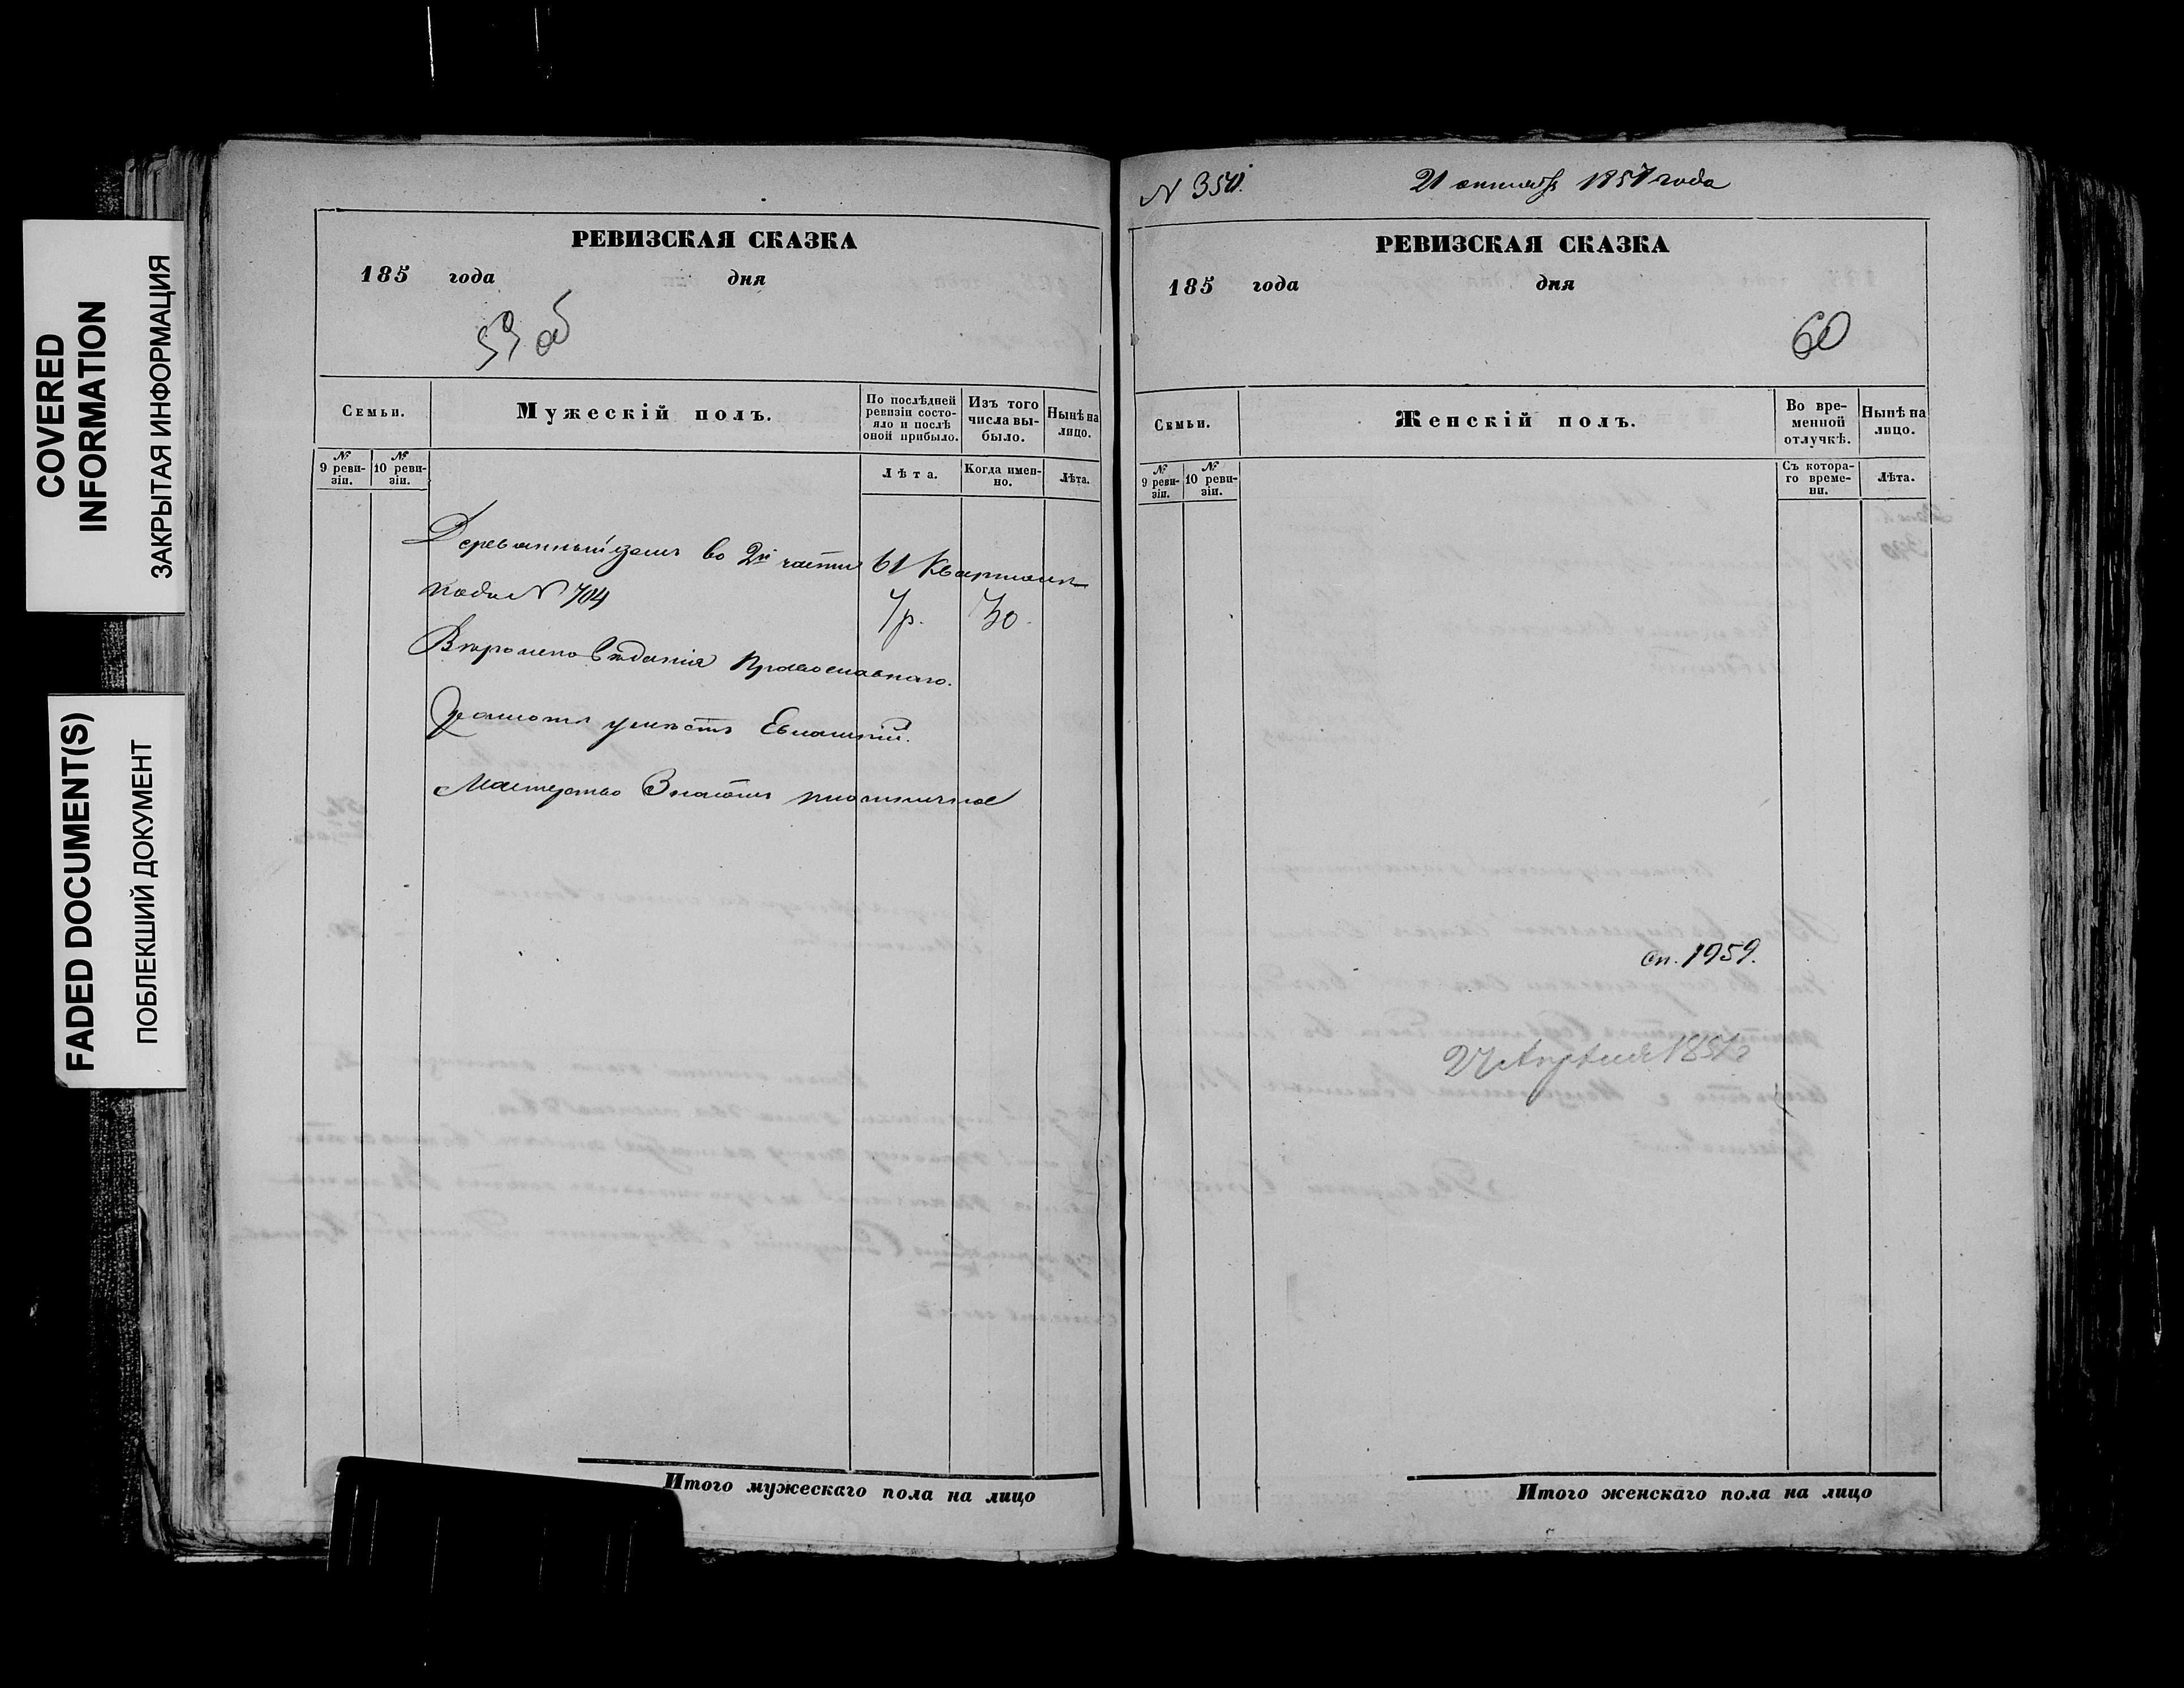 COVERED
INFORMATION
ЗАКРЫТАЯ ИНФОРМАЦИЯ
FADED DOCUMENT(S)
ПОБЛЕКШИЙ ДОКУМЕНТ
РЕВИЗСКАЯ СКАЗКА
185 года дня
59 об
Семьи.
Мужескій полъ.
По послѣдней ревизіи состояло и послѣ оной прибыло.
Изъ того числа выбыло.
Нынѣ на лицо.
№ 9 ревизіи.
№ 10 ревизіи.
Лѣта.
Когда именно.
Лѣта.
Деревянный домъ во 2й части 61 Квартала
подъ N 704
7р. 30.
Вѣроисповѣданія Православнаго.
Грамоте умѣетъ Евлампій.
Мастерство Знаетъ
Итого мужескаго пола на лицо
N 350.
21 октября 1857 года
РЕВИЗСКАЯ СКАЗКА
185 года дня
60
Семьи.
Женскій полъ.
Во временной отлучкѣ.
Нынѣ на лицо.
№ 9 ревизіи.
№ 10 ревизіи.
Съ котораго времени.
Лѣта.
оп. 1959.
27 Апреля
Итого женскаго пола на лицо